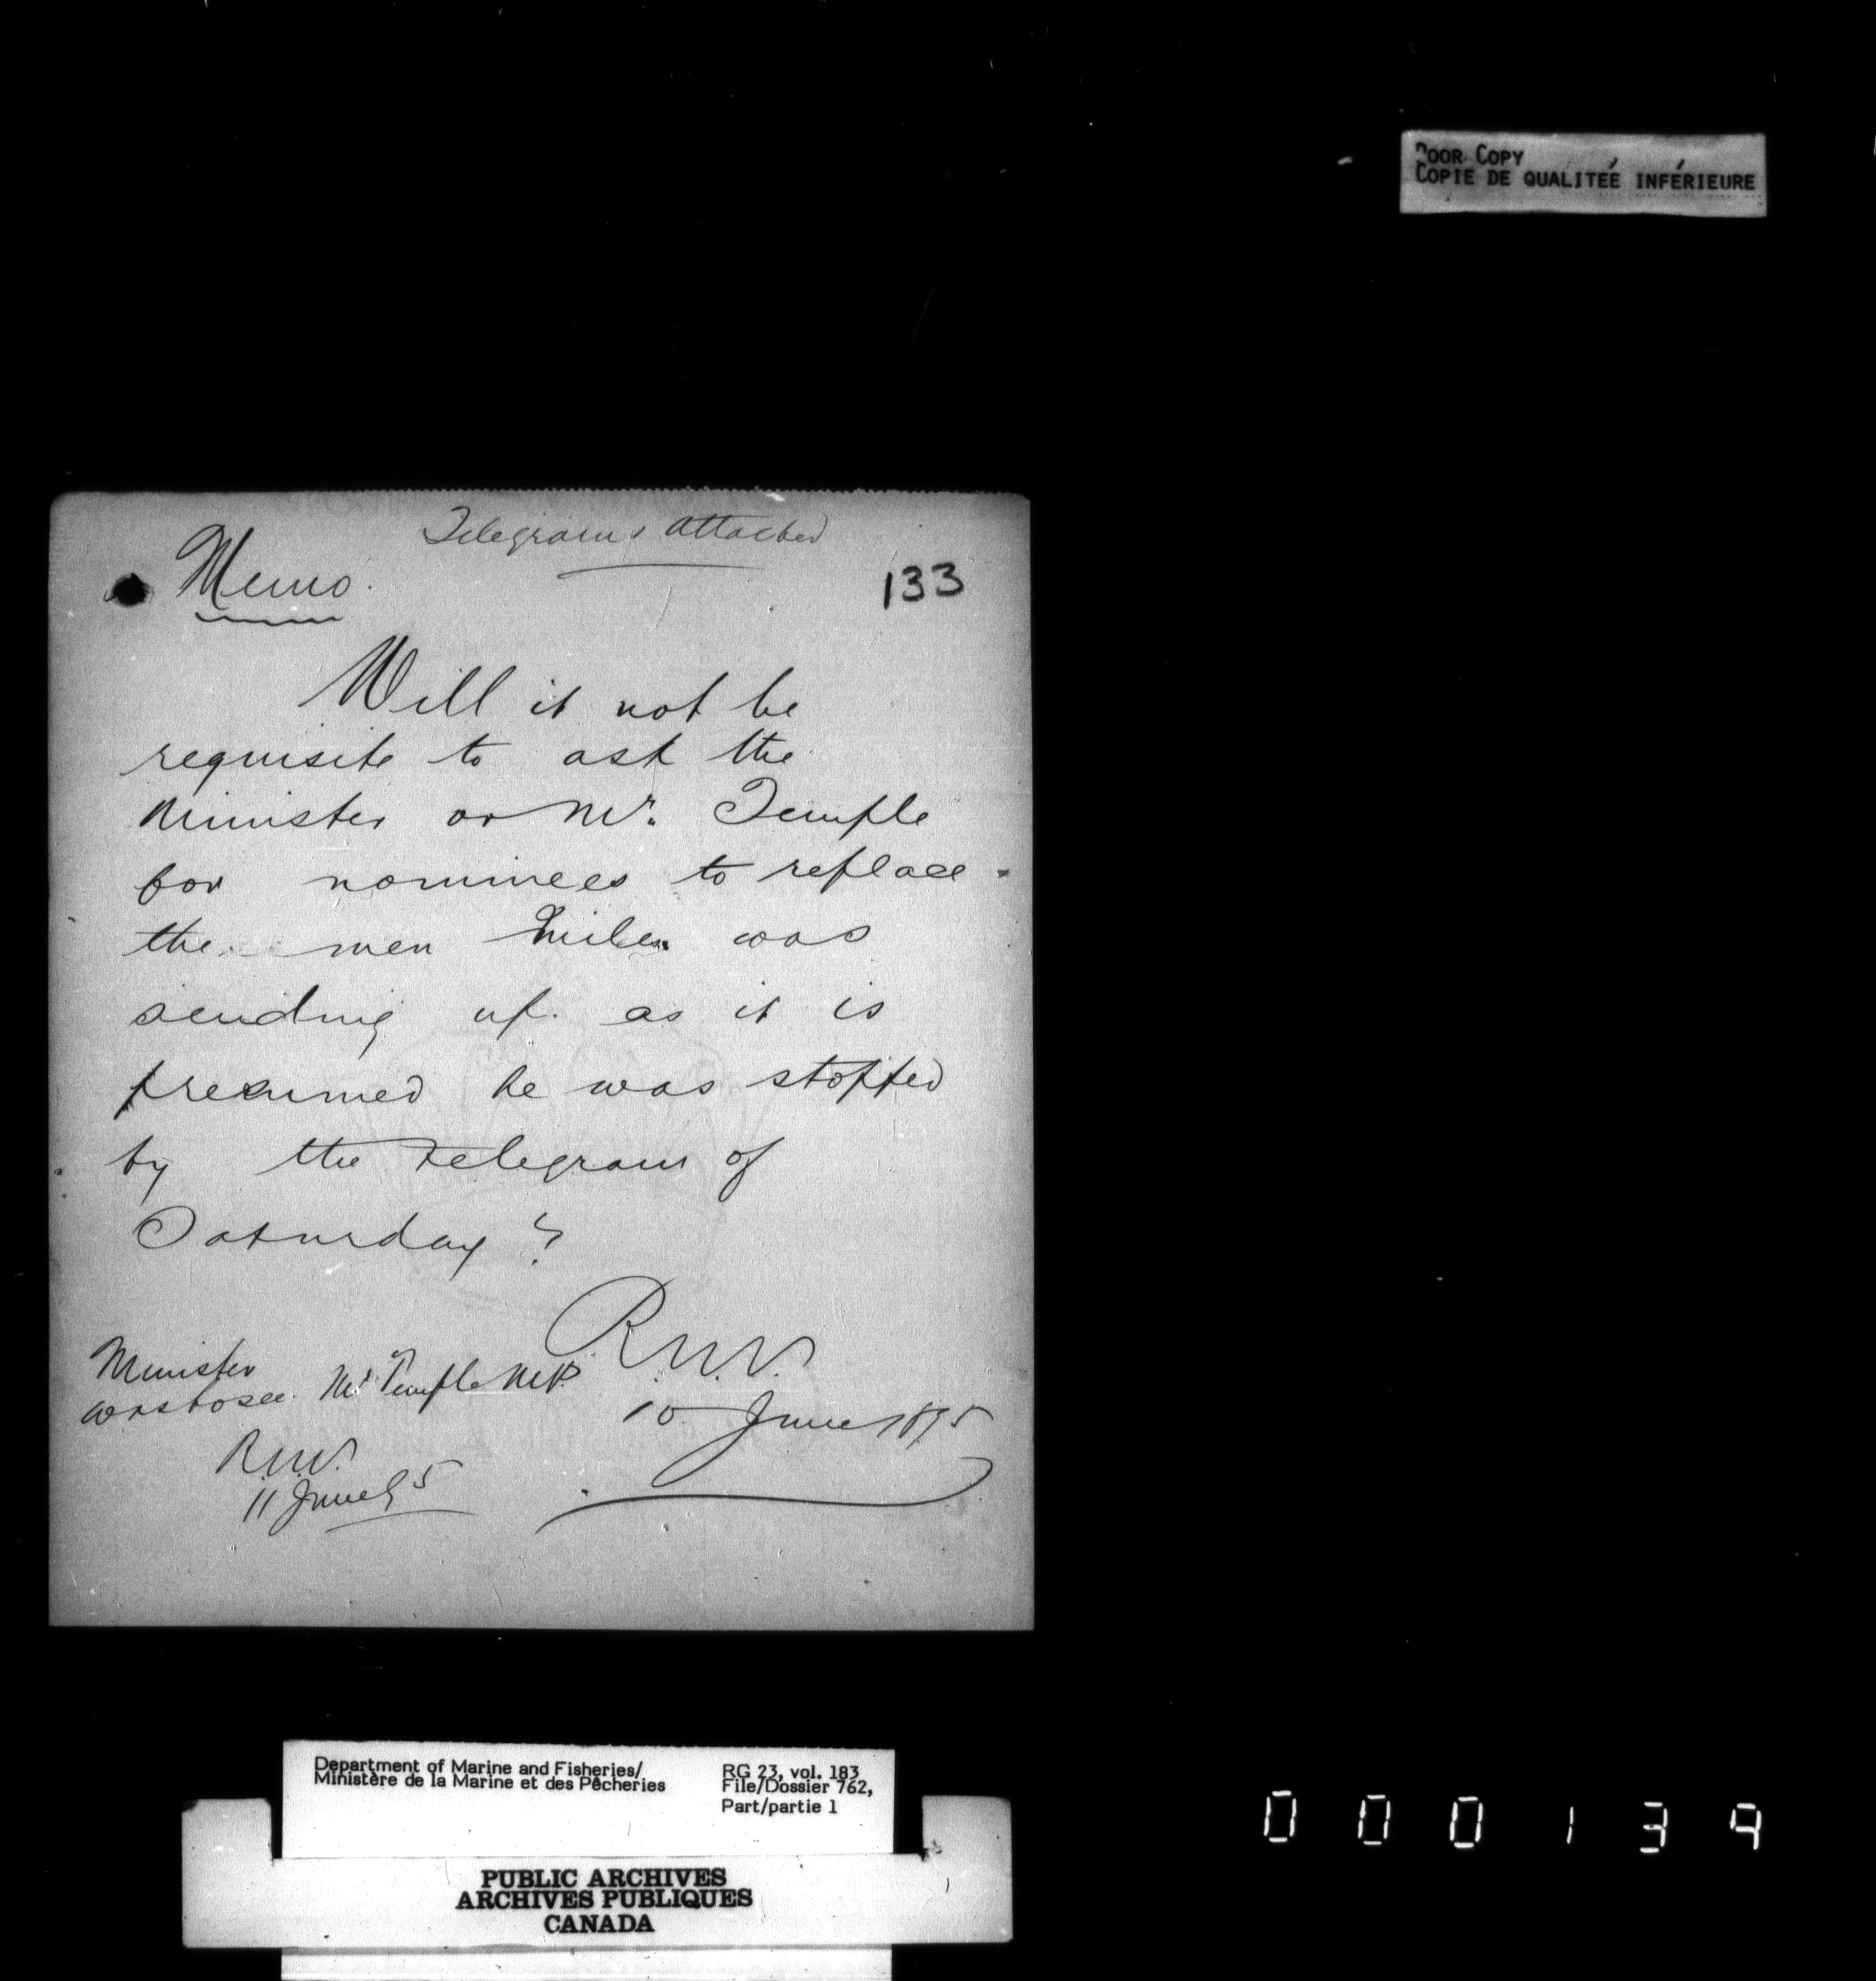 POOR COPY
COPIE DE QUALITEÉ INFÉRIEURE
Telegrams attached
Memo.
133
Will it not be
requisite to ask the
Minister or Mr. Temple
for nominees to replace
the men Miles was
sending up as it is
presumed he was stopped
by the telegram of
Saturday?
R.N.V.
10 June 1895
Minister
was to see Mr Temple M.P.
R.N.V.
11 June 95
Department of Marine and Fisheries/
Ministère de la Marine et des Pêcheries
RG 23, vol. 183
File/Dossier 762,
Part/partie 1
PUBLIC ARCHIVES
ARCHIVES PUBLIQUES
CANADA
000139